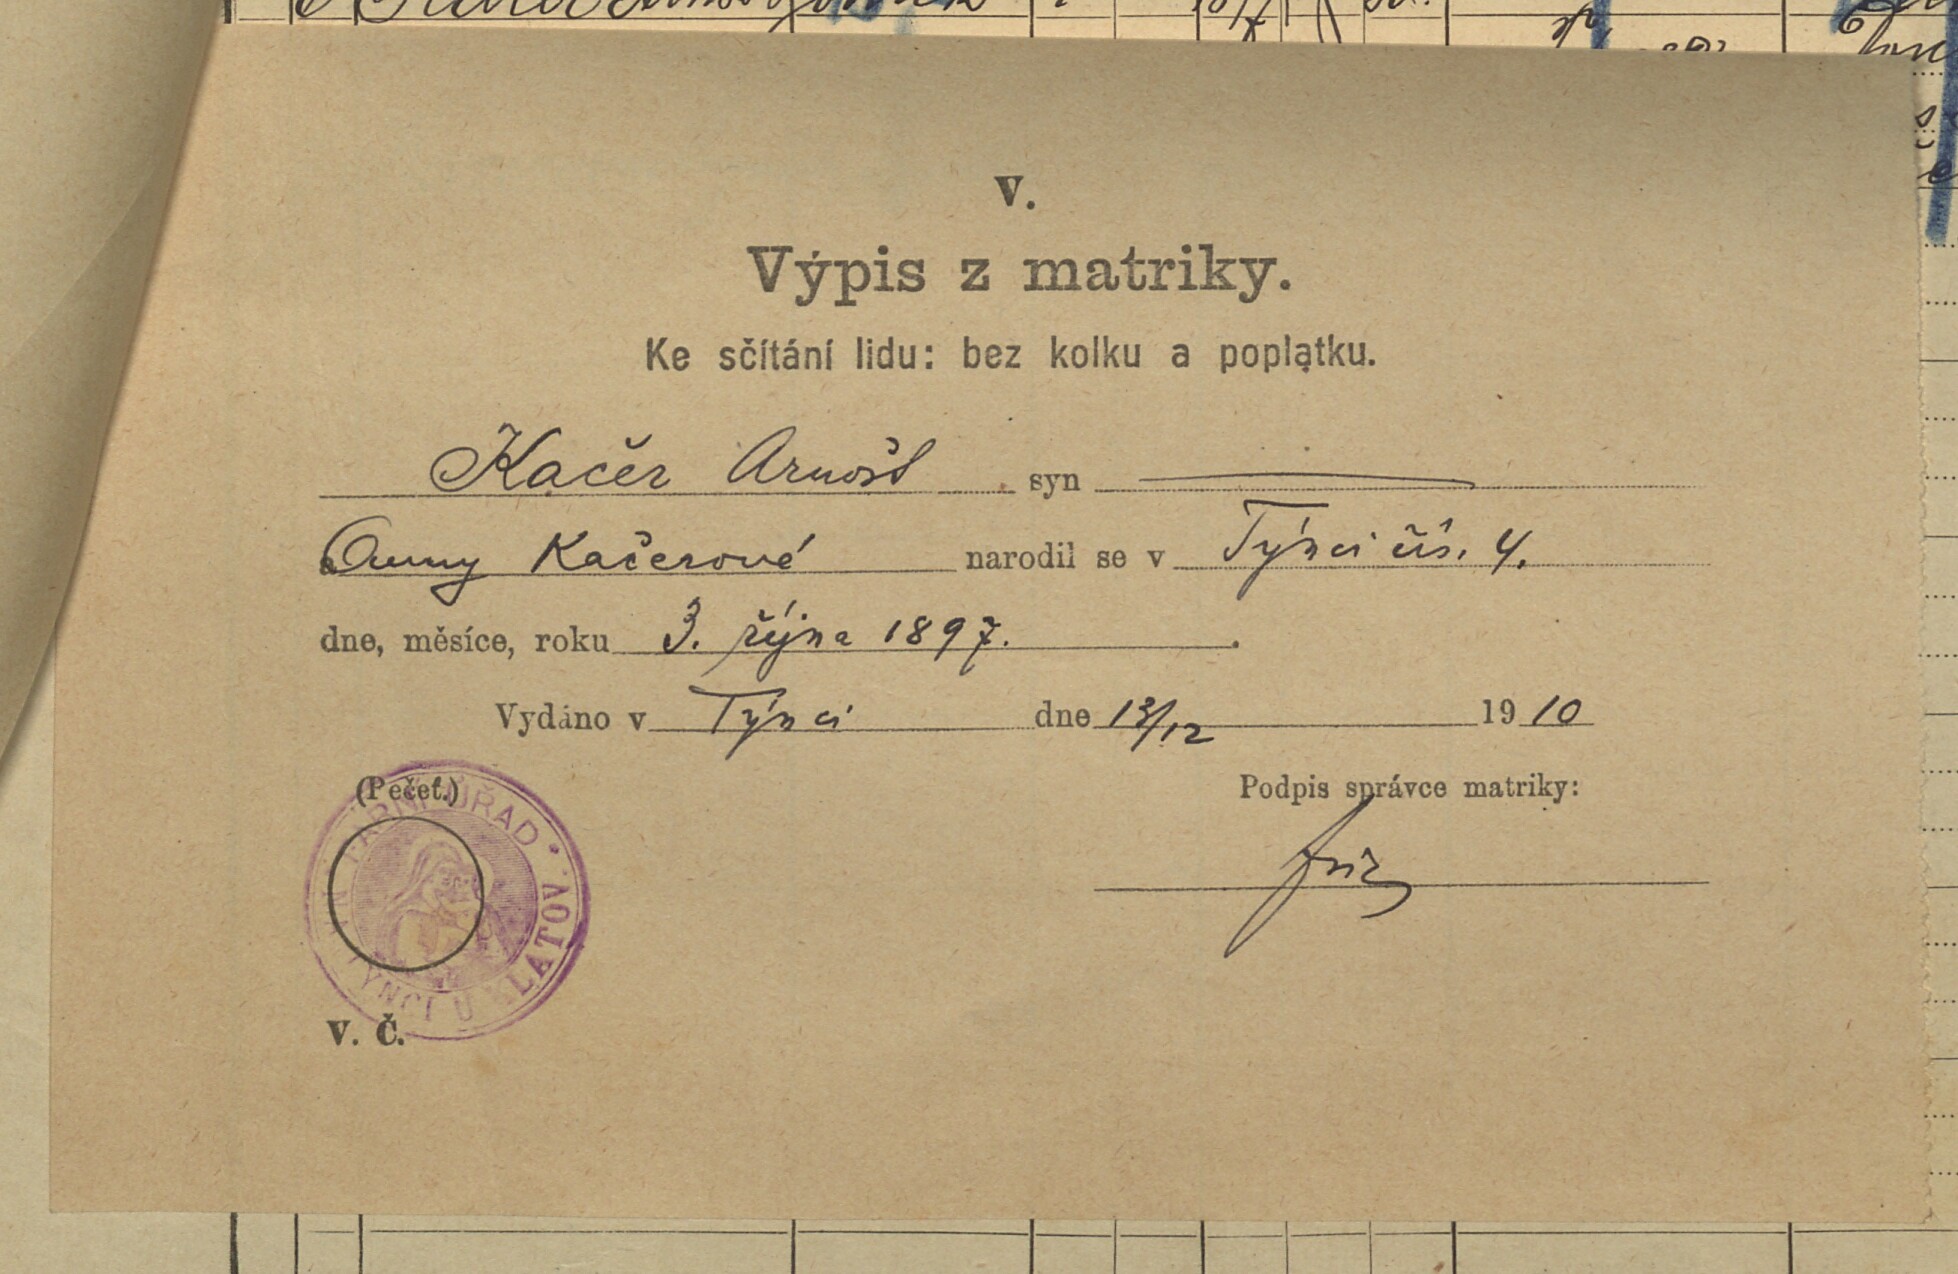 V.
Výpis z matriky.
Ke sčítání lidu: bez kolku a poplatku.
Kačer Arnošt syn
Anny Kačerové narodil se v Týnci čís. 4.
dne, měsíce, roku 3. října 1897.
Vydáno v Týnci dne 13/12 1910
(Pečeť.)
Podpis správce matriky:
FARNÍ ÚŘAD
V TÝNCI U KLATOV
V. Č.